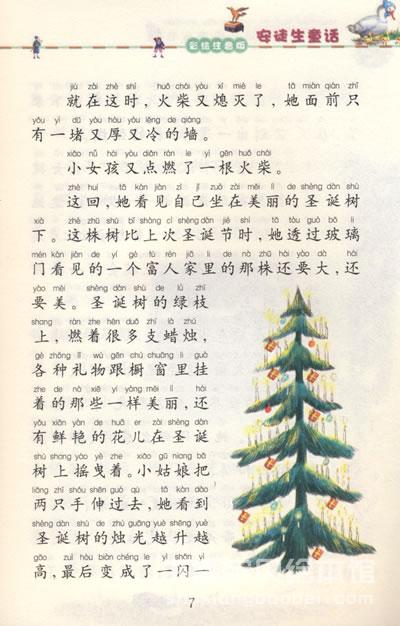 安徒生童话
彩绘注音版
jiù zài zhè shí huǒ chái yòu xī miè le tā miàn qián zhǐ
就在这时，火柴又熄灭了，她面前只
yǒu yì dǔ yòu hòu yòu lěng de qiáng
有一堵又厚又冷的墙。
xiǎo nǚ hái yòu diǎn rán le yì gēn huǒ chái
小女孩又点燃了一根火柴。
zhè huí tā kàn jiàn zì jǐ zuò zài měi lì de shèng dàn shù
这回，她看见自己坐在美丽的圣诞树
xià zhè zhū shù bǐ shàng cì shèng dàn jié shí tā tòu guò bō li
下。这株树比上次圣诞节时，她透过玻璃
mén kàn jiàn de yí gè fù rén jiā li de nà zhū hái yào dà hái
门看见的一个富人家里的那株还要大，还
yào měi shèng dàn shù de lǜ zhī
要美。圣诞树的绿枝
shang rán zhe hěn duō zhī là zhú
上，燃着很多支蜡烛，
gè zhǒng lǐ wù gēn chú chuāng li guà
各种礼物跟橱窗里挂
zhe de nà xiē yí yàng měi lì hái
着的那些一样美丽，还
yǒu xiān yàn de huā er zài shèng dàn
有鲜艳的花儿在圣诞
shù shang yáo yè zhe xiǎo gū niang bǎ
树上摇曳着。小姑娘把
liǎng zhī shǒu shēn guò qù tā kàn dào
两只手伸过去，她看到
shèng dàn shù de zhú guāng yuè shēng yuè
圣诞树的烛光越升越
gāo zuì hòu biàn chéng le yì shǎn yì
高，最后变成了一闪一
7